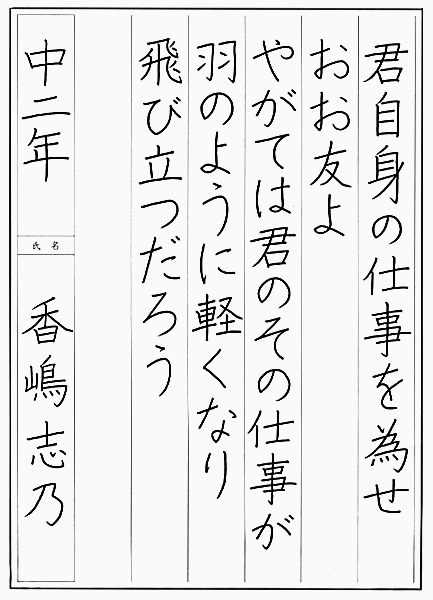 君自身の仕事を為せ
おお友よ
やがては君のその仕事が
羽のように軽くなり
飛び立つだろう
中二年
氏名
香嶋志乃